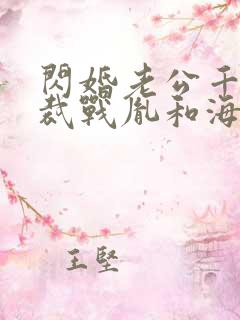 閃婚老公千
裁戰胤和海
王堅